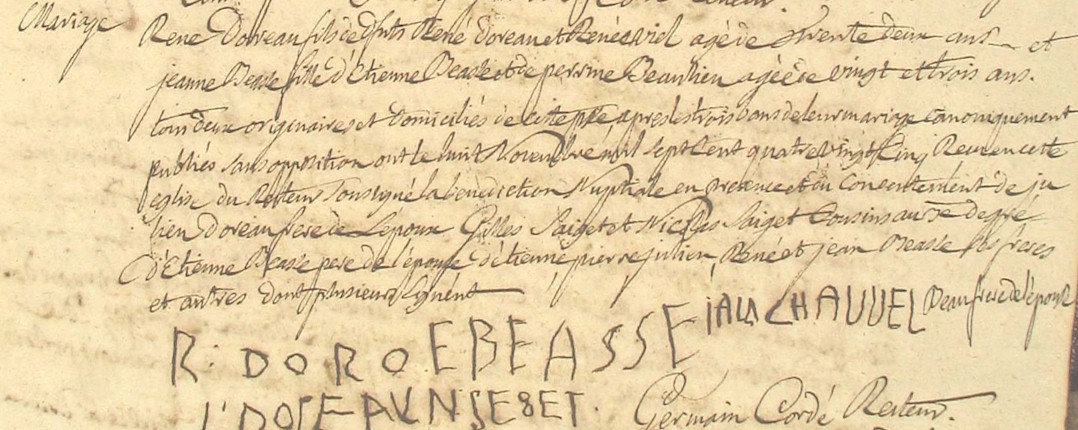 Mariage
René Doreau fils de dfts René doreau et Renée viel agé de trente deux ans et
jeanne Beasse fille d'Etienne Beasse et de perrine Beaulieu agéé de vingt et trois ans.
tous deux originaires et Domiciliés de cette psse apres les trois bans de leur mariage canoniquement
publiés sans opposition ont le huit Novembre mil sept Cent quatre vingt Cinq Recu en cette
eglise du Recteur Soussigné la benediction Nuptiale en presence et du Consentement de ju
lien doreau frere de Lepoux Gilles Saiget et Nicolas Saiget Cousins au degré
d'Etienne Beasse pere de l'épouse d'étienne pierre julien, René et jean Beasse ses freres
et autres dont plusieurs Signent
R. DORO E BEASSE CHAUVEL Beau frere de l'épouse
Germain Cordé Recteur.